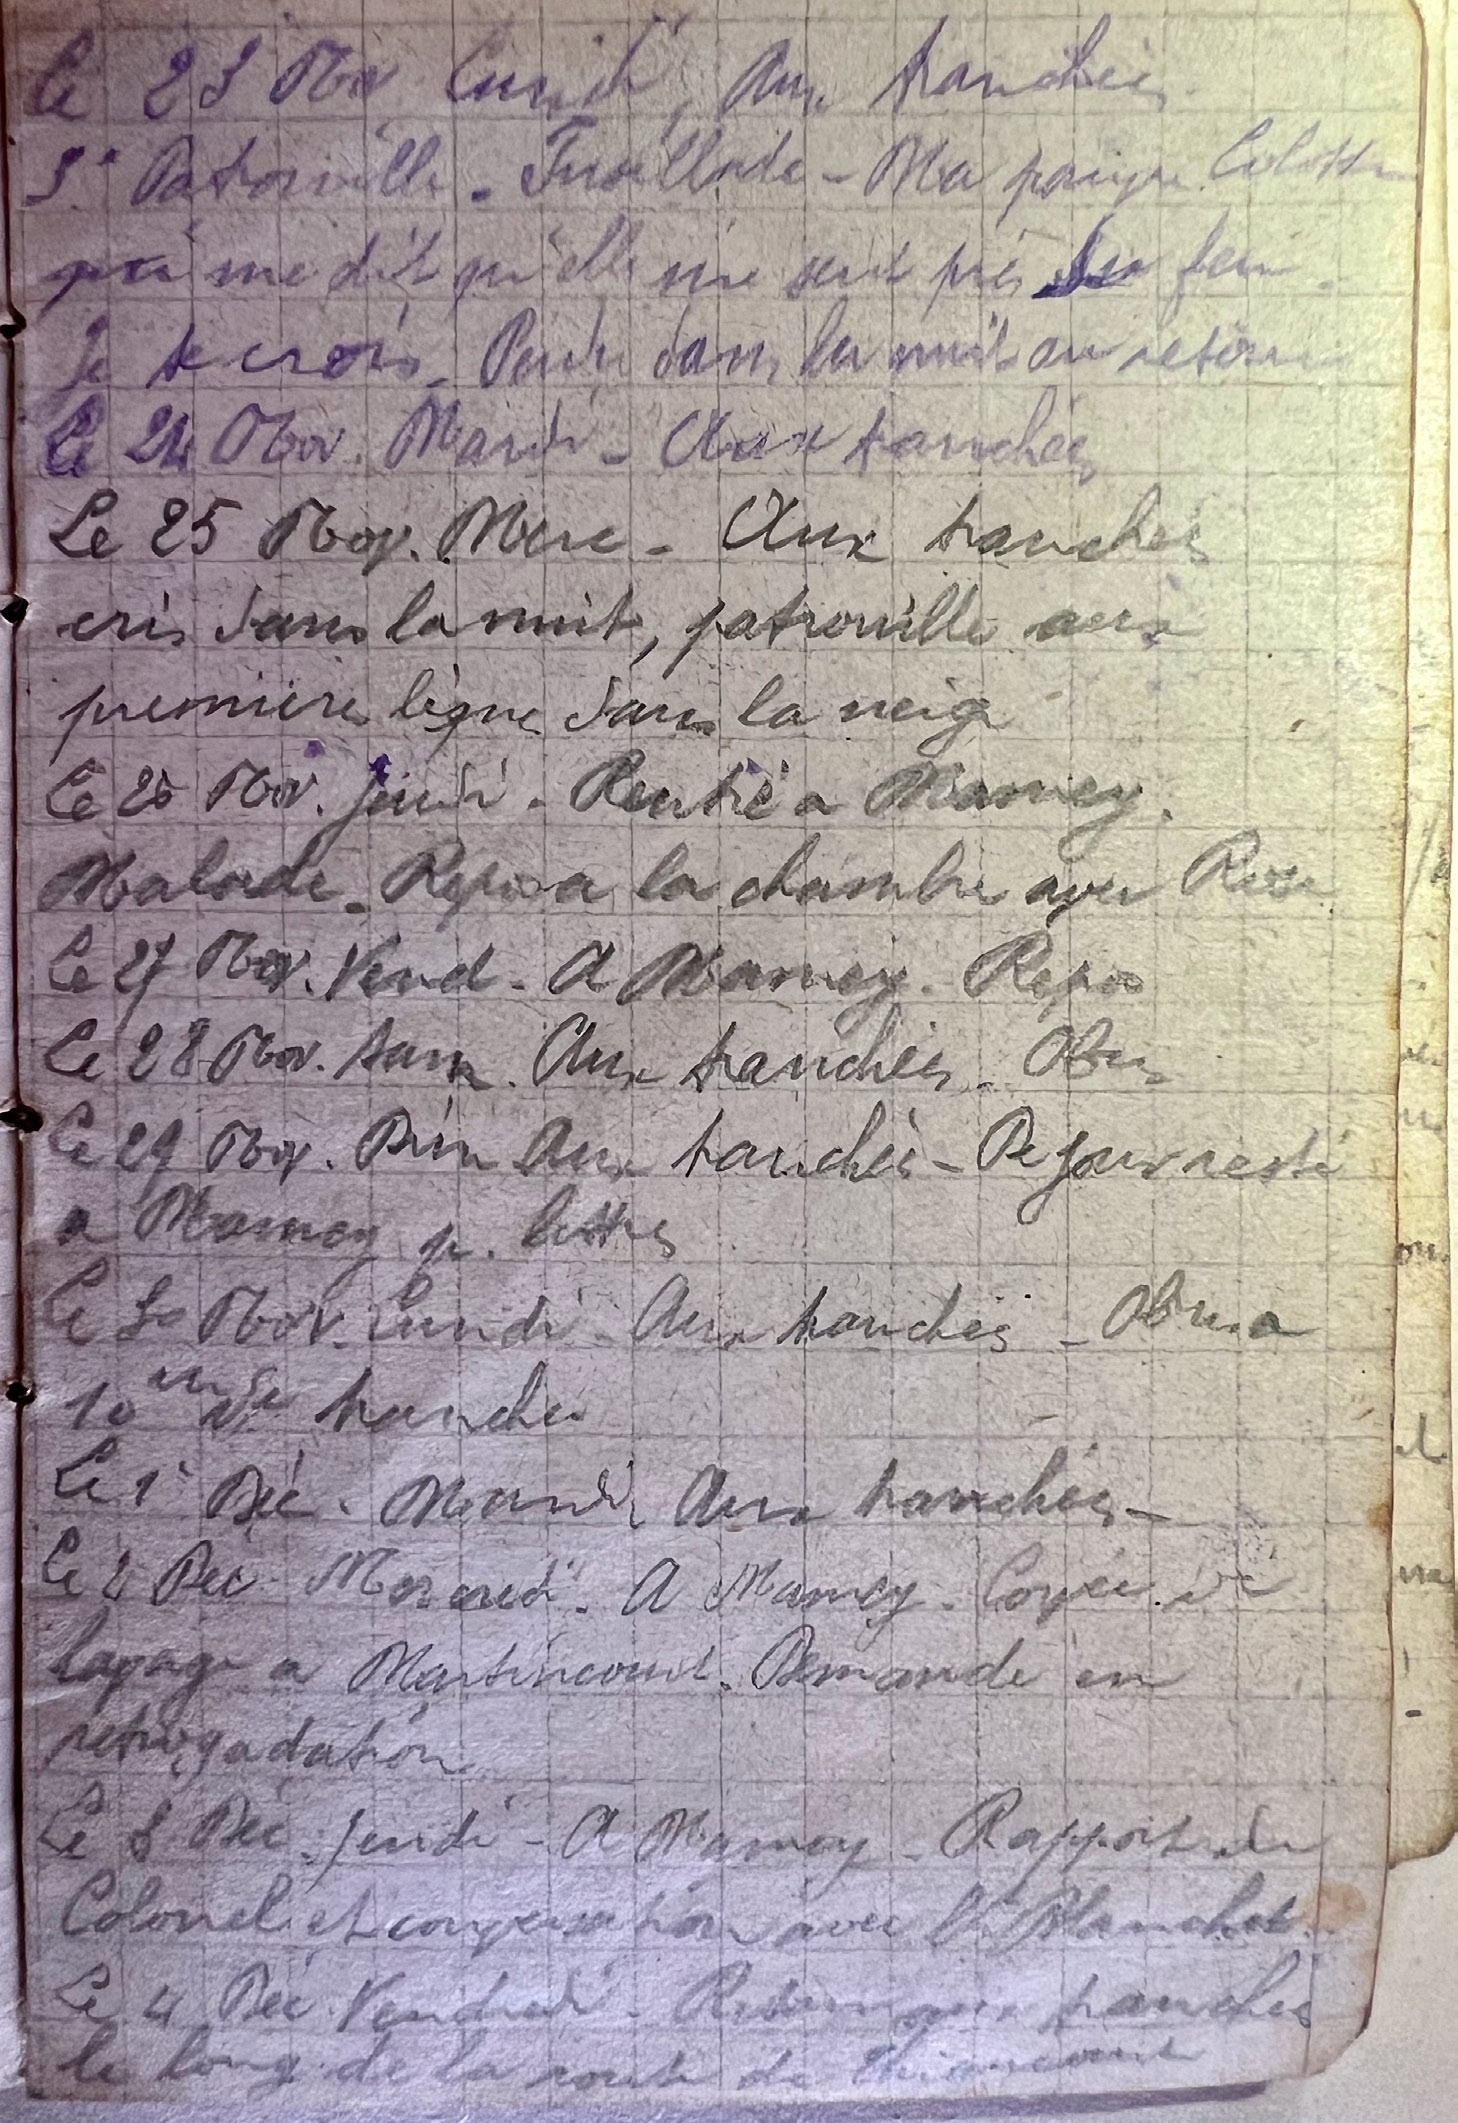 Le 23 Nov Lundi, Aux tranchées
3e Patrouille - Fusillade - Ma pauvre
qui me dit qu'elle me sent près du feu.
Je te crois. Perdu dans la nuit au retour
Le 24 Nov. Mardi - Aux tranchées
Le 25 Nov. Merc - Aux tranchés
cris dans la nuit, patrouille aux
premières lignes dans la neige
Le 26 Nov. Jeudi - Rentré a Mamey.
Malade. Repos a la chambre avec
Le 27 Nov. Vend - A Mamey. Repos
Le 28 Nov. Sam. Aux tranchées - Obus
Le 29 Nov. Dim Aux tranchés - De jour resté
a Mamey p. lettres
Le 30 Nov. Lundi - Aux tranchés - Obus a
10 m de tranchée
Le 1e Déc. Mardi Aux tranchées -
Le 2 Déc. Mercredi. A Mamey. Corvée de
lavage a Martincourt. Demande en
rétrogadation
Le 3 Déc. Jeudi - A Mamey - Rapport du
Colonel et conversation avec Blanchet.
Le 4 Déc. Vendredi - Retour aux tranchées
le long de la route de Thiaucourt